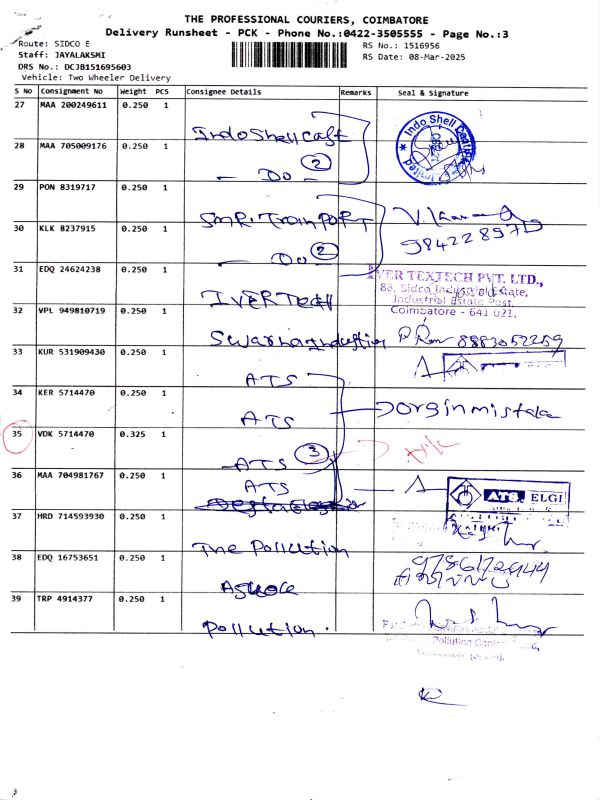 THE PROFESSIONAL COURIERS, COIMBATORE
Delivery Runsheet - PCK - Phone No.:0422-3505555 - Page No.:3
Route: SIDCO E
RS No.: 1516956
Staff: JAYALAKSMI
RS Date: 08-Mar-2025
DRS No.: DCJB151695603
Vehicle: Two Wheeler Delivery
S No Consignment No Weight PCS Consignee Details Remarks Seal & Signature
27 MAA 200249611 0.250 1 Indo Shell Cast
28 MAA 705009176 0.250 1 - Do - 2
29 PON 8319717 0.250 1 SMR. Tranport
30 KLK 8237915 0.250 1 - Do - 2
31 EDQ 24624238 0.250 1 IVER Tech
IVER TEXTECH PVT. LTD.,
88, Sidco Industrial Estate,
Industrial Estate Post,
Coimbatore - 641 021.
32 VPL 949810719 0.250 1 Swarna Industries 8883052259
33 KUR 531909430 0.250 1 ATS
34 KER 5714470 0.250 1 ATS
35 VDK 5714470 0.325 1 ATS 3
36 MAA 704981767 0.250 1 ATS
ATS ELGI
37 HRD 714593930 0.250 1 The Pollution
38 EDQ 16753651 0.250 1 Ashok
39 TRP 4914377 0.250 1 Pollution.